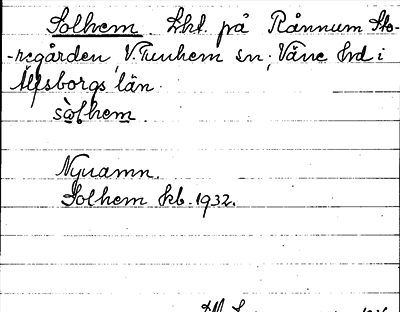 Solhem. Lht. på Rånnum Sto-
-regården, V. Tunhem sn; Väne hd i
Älfsborgs län.
sòlhem.
Nynamn.
Solhem kb. 1932.